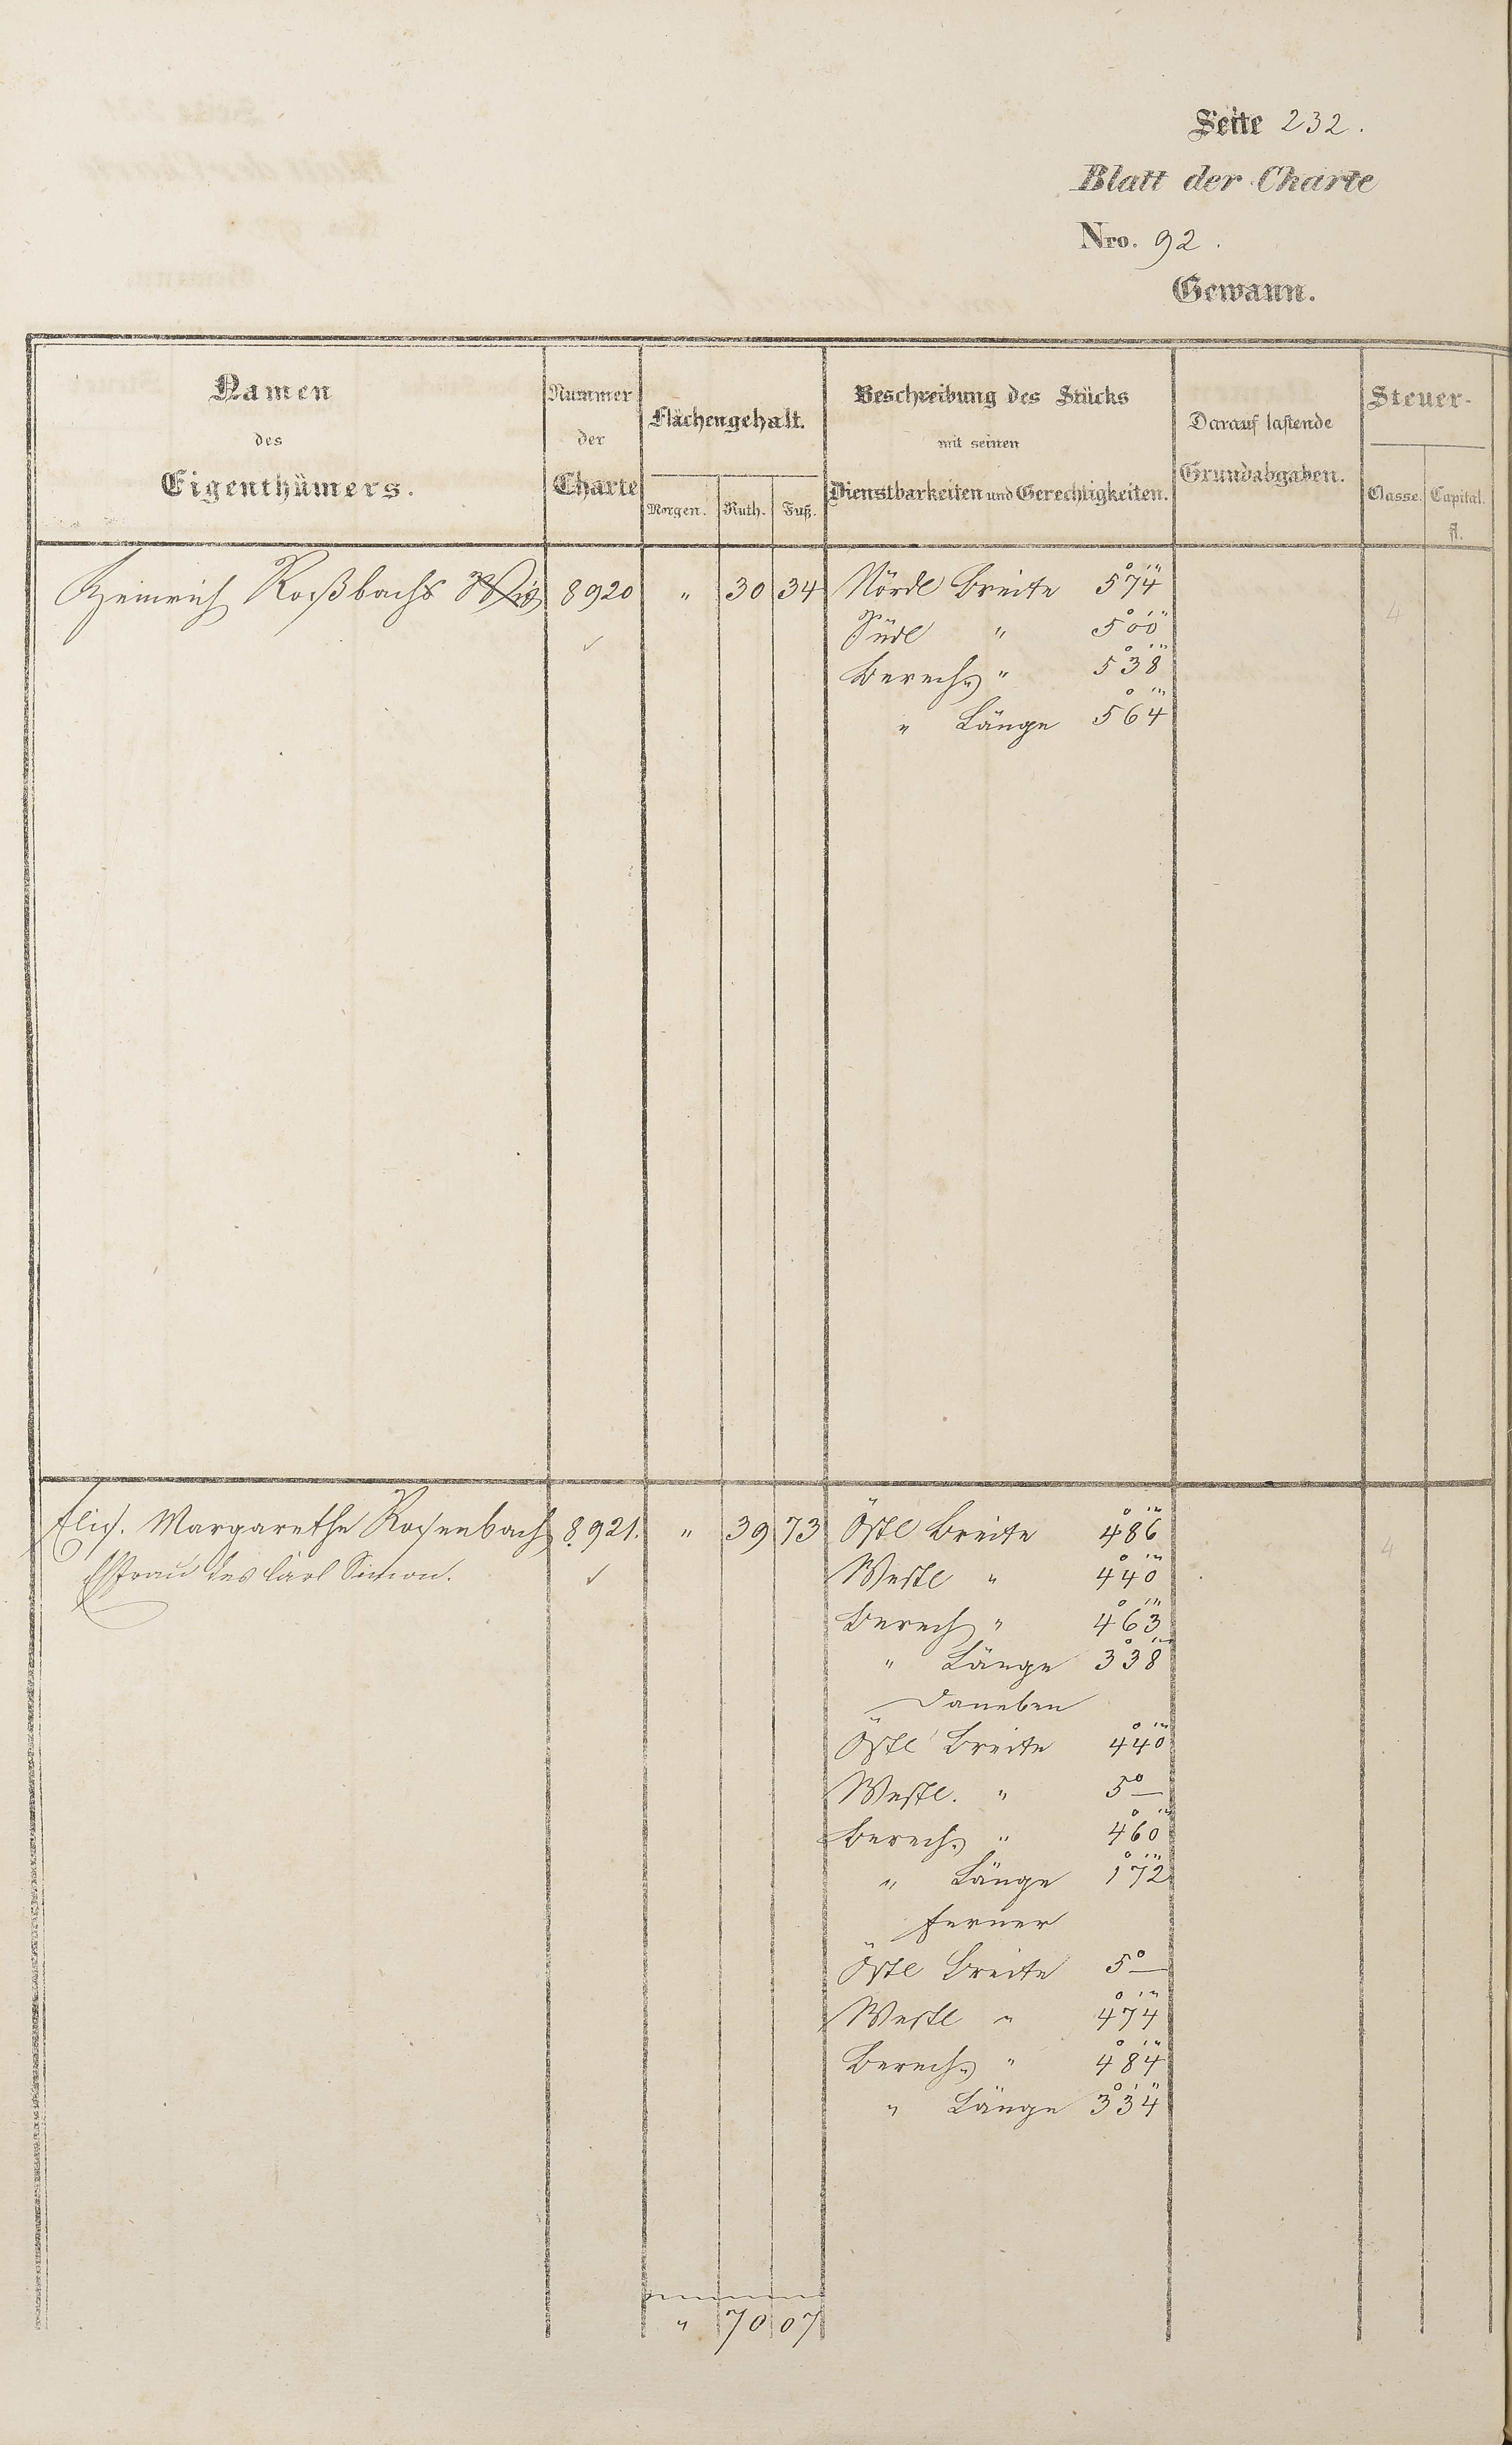 Seite 232.
Blatt der Charte
Nro. 92.
Gewann.
Namen
des
Eigenthümers.
Nummer
der
Charte
Flächengehalt.
Morgen. Ruth. Fuß.
Beschreibung des Stücks
mit seinen
Dienstbarkeiten und Gerechtigkeiten.
Darauf lastende
Grundabgaben.
Steuer-
Classe. Capital.
fl.
Heinrich Roßbachs 8920 " 30 34 Nördl Breite 5°7'4"
Südl " 5°0'0"
Berech " 5°3'8"
" Länge 5°6'4"
4
Elis. Margarethe Rosenbach 8921. " 39 73 Östl Breite 4°8'6"
Ehfrau des Carl Simon. Westl " 4°4'0"
4
Berech " 4°6'3"
" Länge 3°3'8"
Daneben
Östl Breite 4°4'0"
Westl. " 5° —
Berech " 4°6'0"
" Länge 1°7'2"
ferner
Östl Breite 5° —
Westl " 4°7'4"
Berech " 4°8'4"
" Länge 3°3'4"
" 70 07